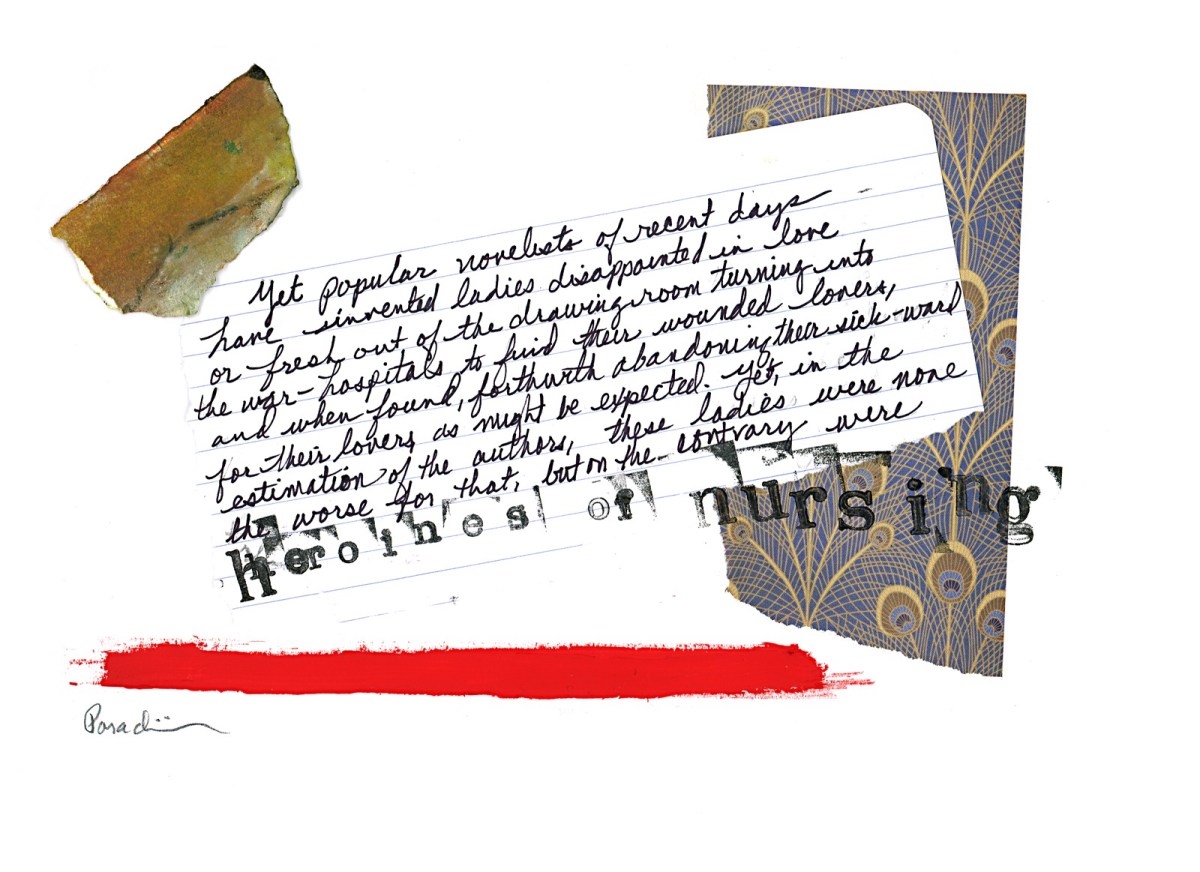 Yet popular novelists of recent days
have invented ladies disappointed in love
or fresh out of the drawing-room turning into
the war-hospitals to find their wounded lovers,
and when found, forthwith abandoning their sick-ward
for their lovers as might be expected. Yet, in the
estimation of the authors, these ladies were none
the worse for that, but on the contrary were
heroines of nursing